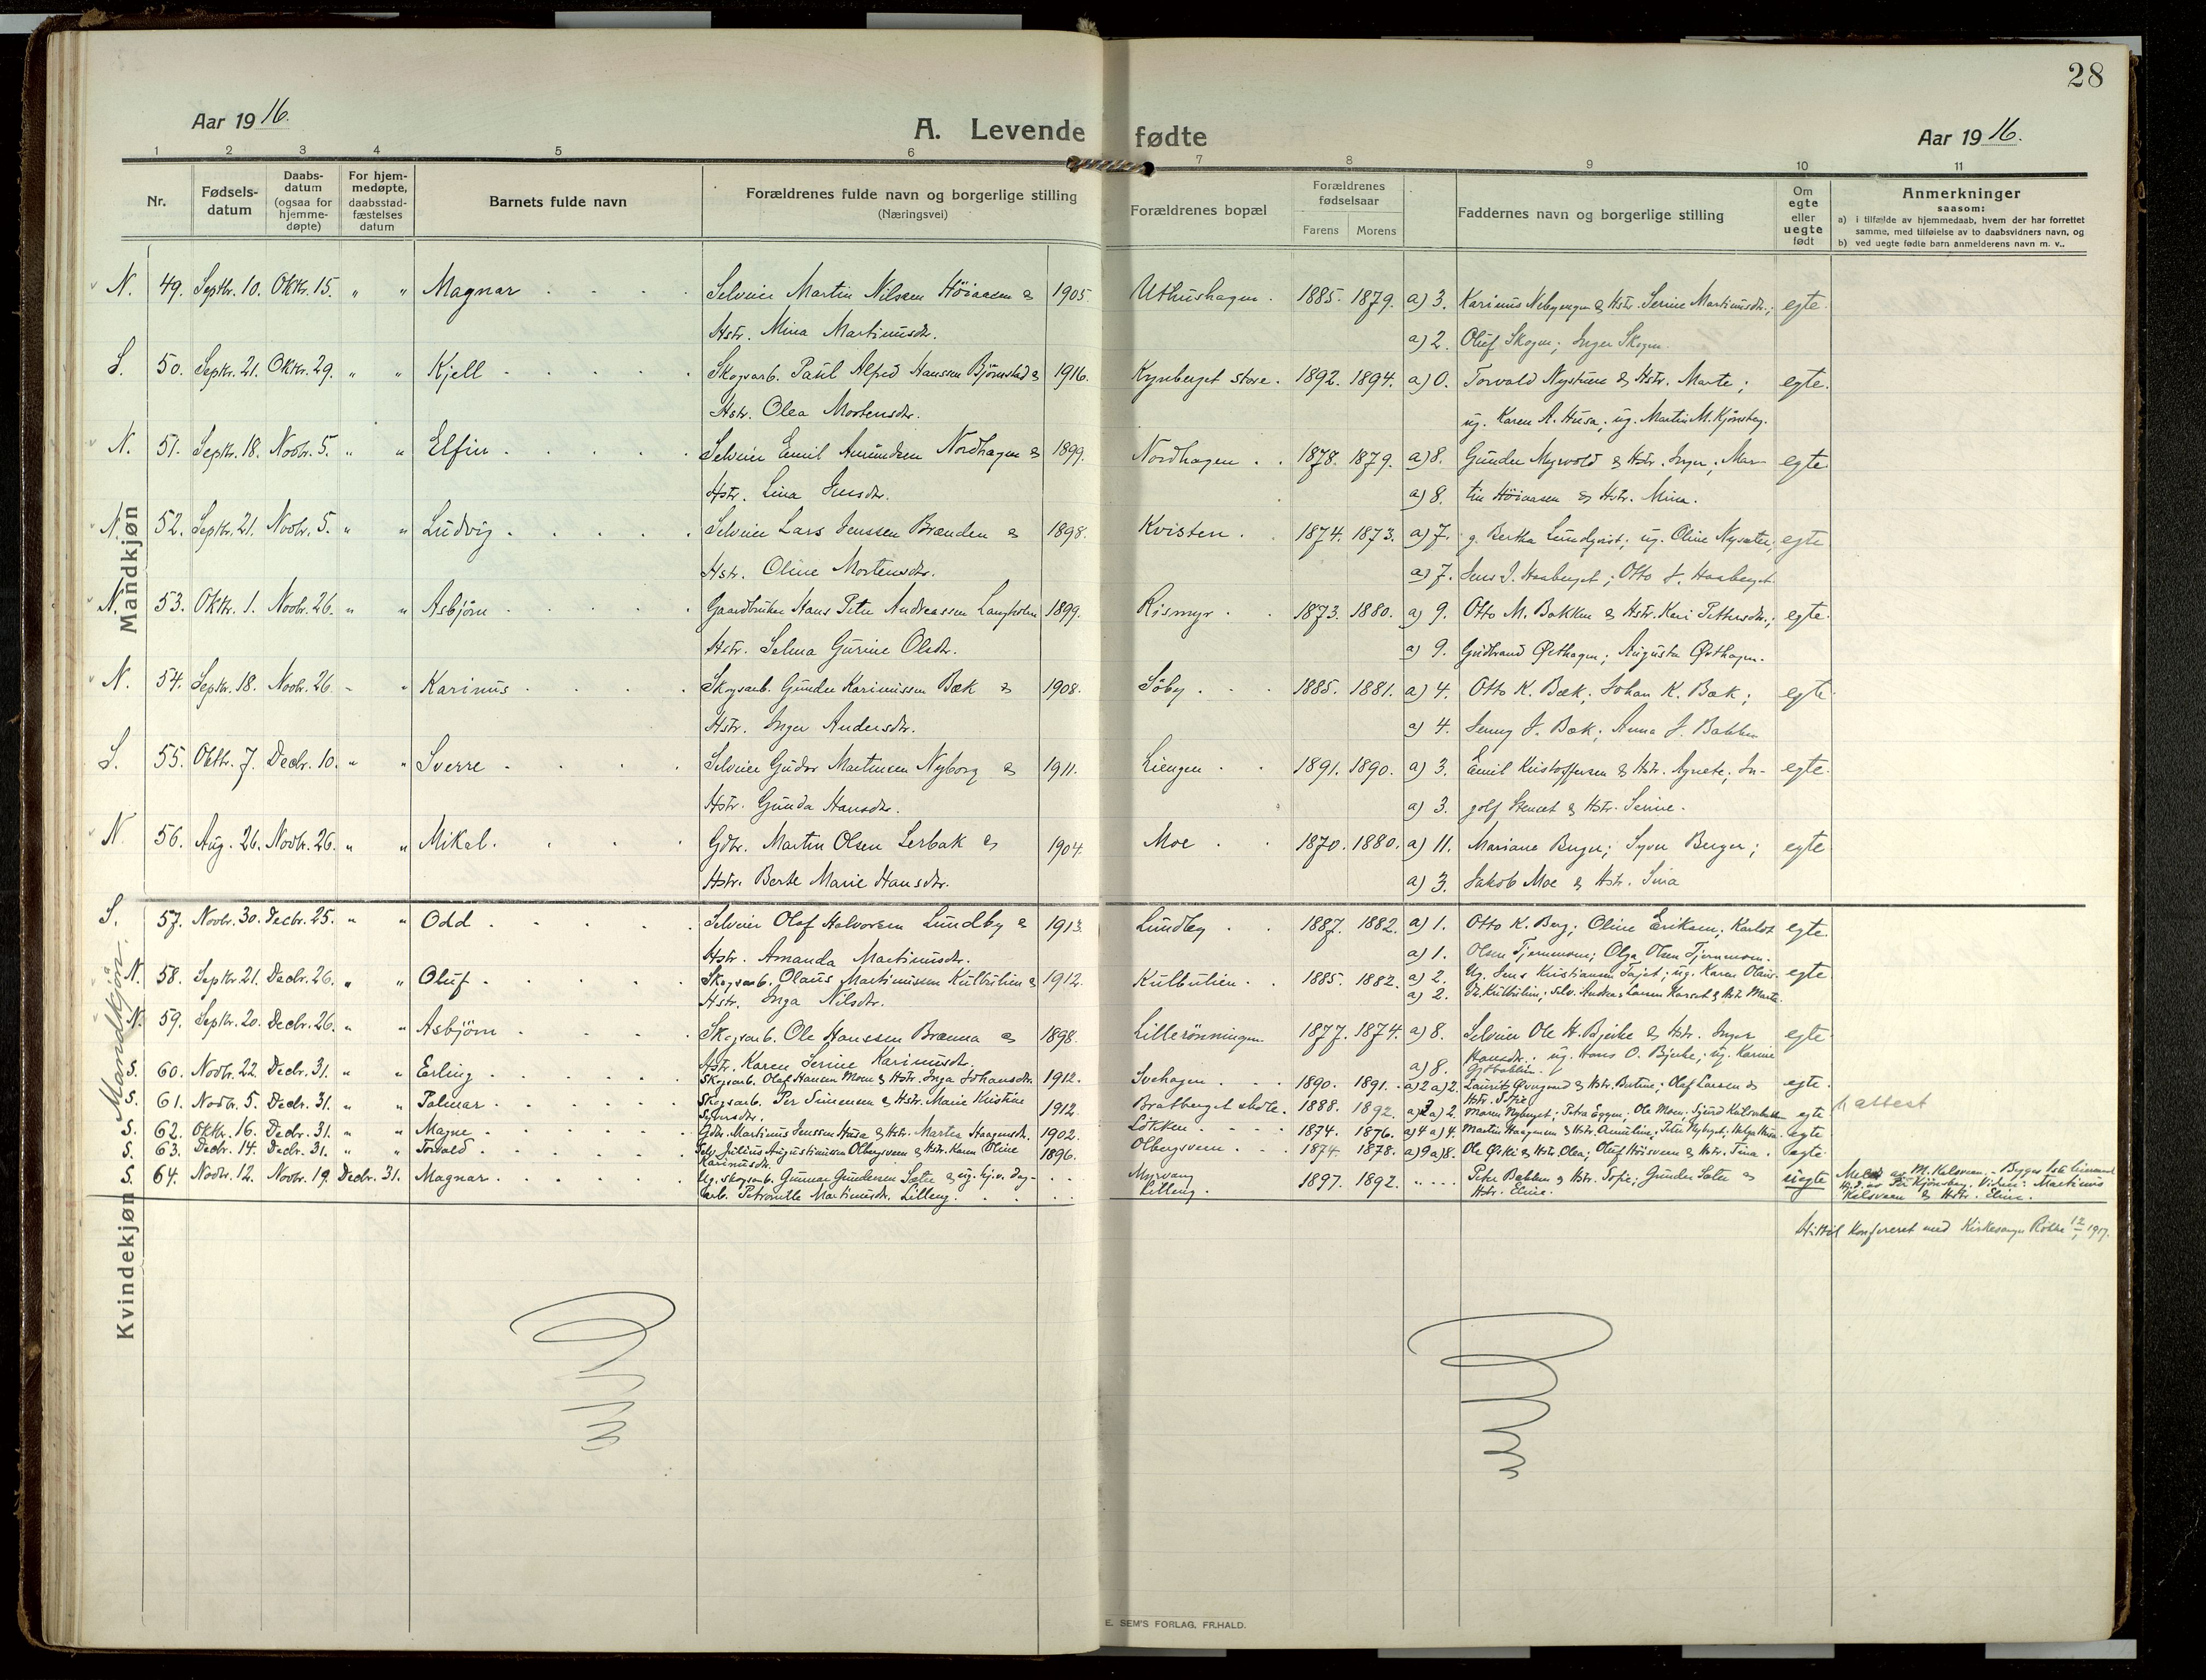 28
Aar 1916.
A. Levende fødte
Aar 1916.
1 2 3 4 5 6 7 8 9 10 11
Nr.
Fødsels-
datum
Daabs-
datum
(ogsaa for
hjemme-
døpte)
For hjem-
medøpte,
daabsstad-
fæstelses
datum
Barnets fulde navn
Forældrenes fulde navn og borgerlige stilling
(Næringsvei)
Forældrenes bopæl
Forældrenes
fødselsaar
Farens Morens
Faddernes navn og borgerlige stilling
Om
egte
eller
uegte
født
Anmerkninger
saasom:
a) i tilfælde av hjemmedaab, hvem der har forrettet
samme, med tilføielse av to daabsvidners navn, og
b) ved uegte fødte barn anmelderens navn m. v..
Mandkjøn
N. 49. Septbr. 10. Oktbr. 15. " " Magnar Selveier Martin Nilssen Höiaasen & 1905. Uthushagen. 1885. 1879. a) 3. Karinus Nebyengen & Hstr. Serine Martinusdtr.; egte.
Hstr. Mina Martinusdtr. a) 2. Oluf Skogen; Inger Skogen.
S. 50. Septbr. 21. Oktbr. 29. " " Kjell Skogsarb. Paul Alfred Hanssen Bjørnstad & 1916. Kynberget store. 1892. 1894. a) 0. Torvald Nystuen & Hstr. Marte; egte.
Hstr. Olea Mortensdtr. ug. Karen A. Husa; ug. Martin M. Kjønsberg.
N. 51. Septbr. 18. Novbr. 5. " " Elfin Selveier Emil Amundsen Nordhagen & 1899. Nordhagen. 1878. 1879. a) 8. Gunder Myrvold & Hstr. Inger; Mar- egte.
Hstr. Lina Jensdtr. a) 8. tin Höiaasen & Hstr. Mina.
N. 52. Septbr. 21. Novbr. 5. " " Ludvig Selveier Lars Jenssen Brænden & 1898. Kvisten. 1874. 1873. a) 7. g. Bertha Lundqvist; ug. Oline Nysæter; egte
Hstr. Oline Mortensdtr. a) 7. Jens J. Haaberget; Otto J. Haaberget.
N. 53. Oktbr. 1. Novbr. 26. " " Asbjörn Gaardbruker Hans Peter Andreassen Langholen 1899. Rismyr. 1873. 1880. a) 9. Otto M. Bakken & Hstr. Kari Pettersdtr.; egte.
Hstr. Selma Gurine Olsdtr. a) 9. Gudbrand Østhagen; Augusta Østhagen.
N. 54. Septbr. 18. Novbr. 26. " " Karinus Skogsarb. Gunder Karinussen Bæk & 1908. Söby. 1885. 1881. a) 4. Otto K. Bæk; Johan K. Bæk; egte.
Hstr. Inger Andersdtr. a) 4. Jenny J. Bæk; Anna J. Bakken
S. 55. Oktbr. 7. Decbr. 10. " " Sverre Selveier Gudor Martinsen Nyborg & 1911. Liengen. 1891. 1890. a) 3. Emil Kristoffersen & Hstr. Agnete; In- egte.
Hstr. Gunda Hansdtr. a) 3. golf Stenset & Hstr. Serine.
N. 56. Aug. 26. Novbr. 26. " " Mikal. Gdbr. Martin Olsen Lerbak & 1904. Moe 1870. 1880. a) 11. Mariane Berger; Syver Berger; egte.
Hstr. Berte Marie Hansdtr. a) 3. Jakob Moe & Hstr. Sina
Mandkjøn.
S. 57. Novbr. 30. Decbr. 25. " " Odd Selveier Olaf Halvorsen Lundby & 1913. Lundby 1887. 1882. a) 1. Otto K. Berg; Oline Eriksen; Karlot egte.
Hstr. Amanda Martinusdtr. a) 1. Olsen Tjernmoen; Olga Olsen Tjernmoen.
N. 58. Septbr. 21. Decbr. 26. " " Oluf Skogsarb. Olaus Martinusen Kulbulien & 1912. Kulbulien. 1885. 1882. a) 2. Ug. Jens Kristiansen Tajet; ug. Karen Olaus- egte
Hstr. Inga Nilsdtr. a) 2. dtr. Kulbulien; Selv. Andreas Larsen & Hstr. Marte.
N. 59. Septbr. 20. Decbr. 26. Asbjörn Skogsarb. Ole Hanssen Brænna & 1898. Lillerönningen 1877. 1874. a) 8. Selveier Ole H. Bjerke & Hstr. Inger egte.
Hstr. Karen Serine Karinusdtr. a) 8. Hansdtr.; ug. Hans O. Bjerke; ug. Karine
S. 60. Novbr. 22. Decbr. 31. " " Erling Skogsarb. Olaf Hansen Moen & Hstr. Inga Johansdtr. 1912. Svehagen 1890. 1891. a) 2 a) 2. Laurits & Hstr. Olaf Larsen & egte.
Hstr. Sofie
S. 61. Novbr. 5. Decbr. 31. " " Palmar Skogsarb. Per Simensen & Hstr. Marie Kristine 1912. Bratberget 1888. 1892. a) 2 a) 2. Maren Nyberget; Petra Eggen; Ole Moen; egte attest
S. 62. Oktbr. 16. Decbr. 31. " " Magne Gdbr. Martinus Jenssen Husa & Hstr. Martea Haagensdtr. 1902. Løkken 1874. 1876. a) 4 a) 4. Martin Haagensen & Hstr. egte
S. 63. Decbr. 14. Decbr. 31. " " Torvald Selv. Julius Augustinussen Olbergsveen & Hstr. Karen Oline 1896. Olbergsveen 1874. 1878. a) 9 a) 8. Ole & Hstr. Olea; Oluf & Hstr. Tina. egte.
Karinusdtr.
S. 64. Novbr. 12. Novbr. 19. Decbr. 31. Magnar Ug. skogsarb. Gunnar Gundersen Sæter & ug. Myrvang 1897. 1892. Peter Bakken & Hstr. Sofie; Gunder Sæter & uegte
arb. Petronille Martinusdtr. Lilleng. Lilleng. Hstr. Eline.
Kjönsberg. Vidner: Martinus
& Hstr. Eline.
Kvindekjøn
Hittil konfereret med Kirkesanger 12/1 1917.
E. SEM'S FORLAG, FR.HALD.